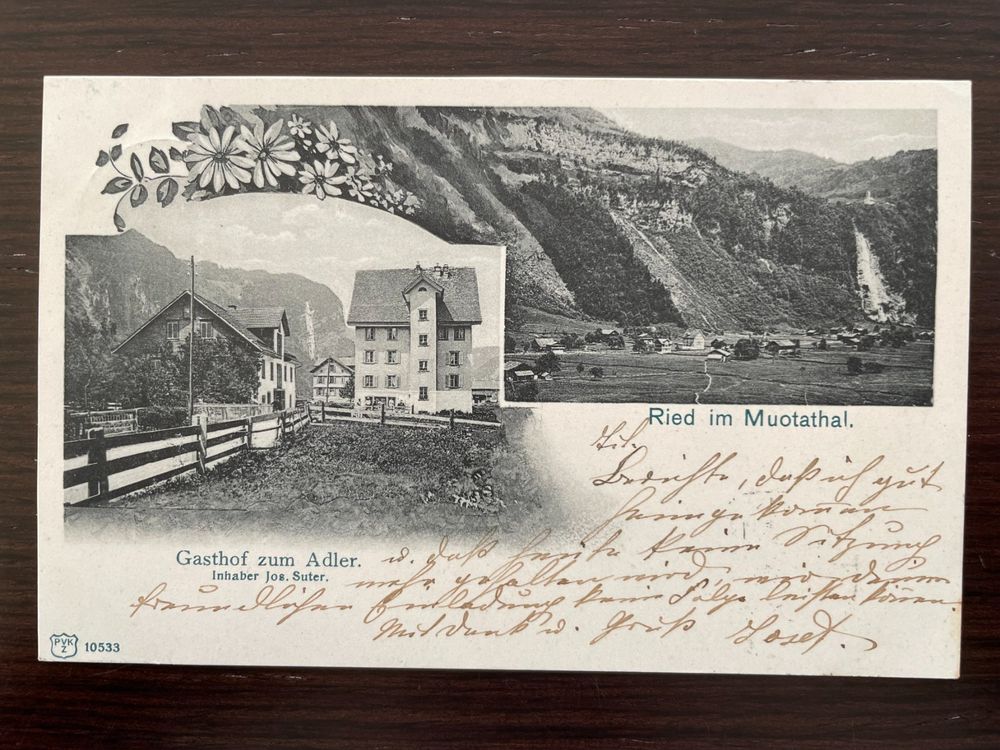 Ried im Muotathal.
Berichte, daß ich gut
heimgekommen
u. daß heute keine Sitzung
mehr gehalten wird, wir
freundlichen Einladung keine Folge leisten können.
Mit Dank u. Gruß Josef.
Gasthof zum Adler.
Inhaber Jos. Suter.
PVK
Z
10533